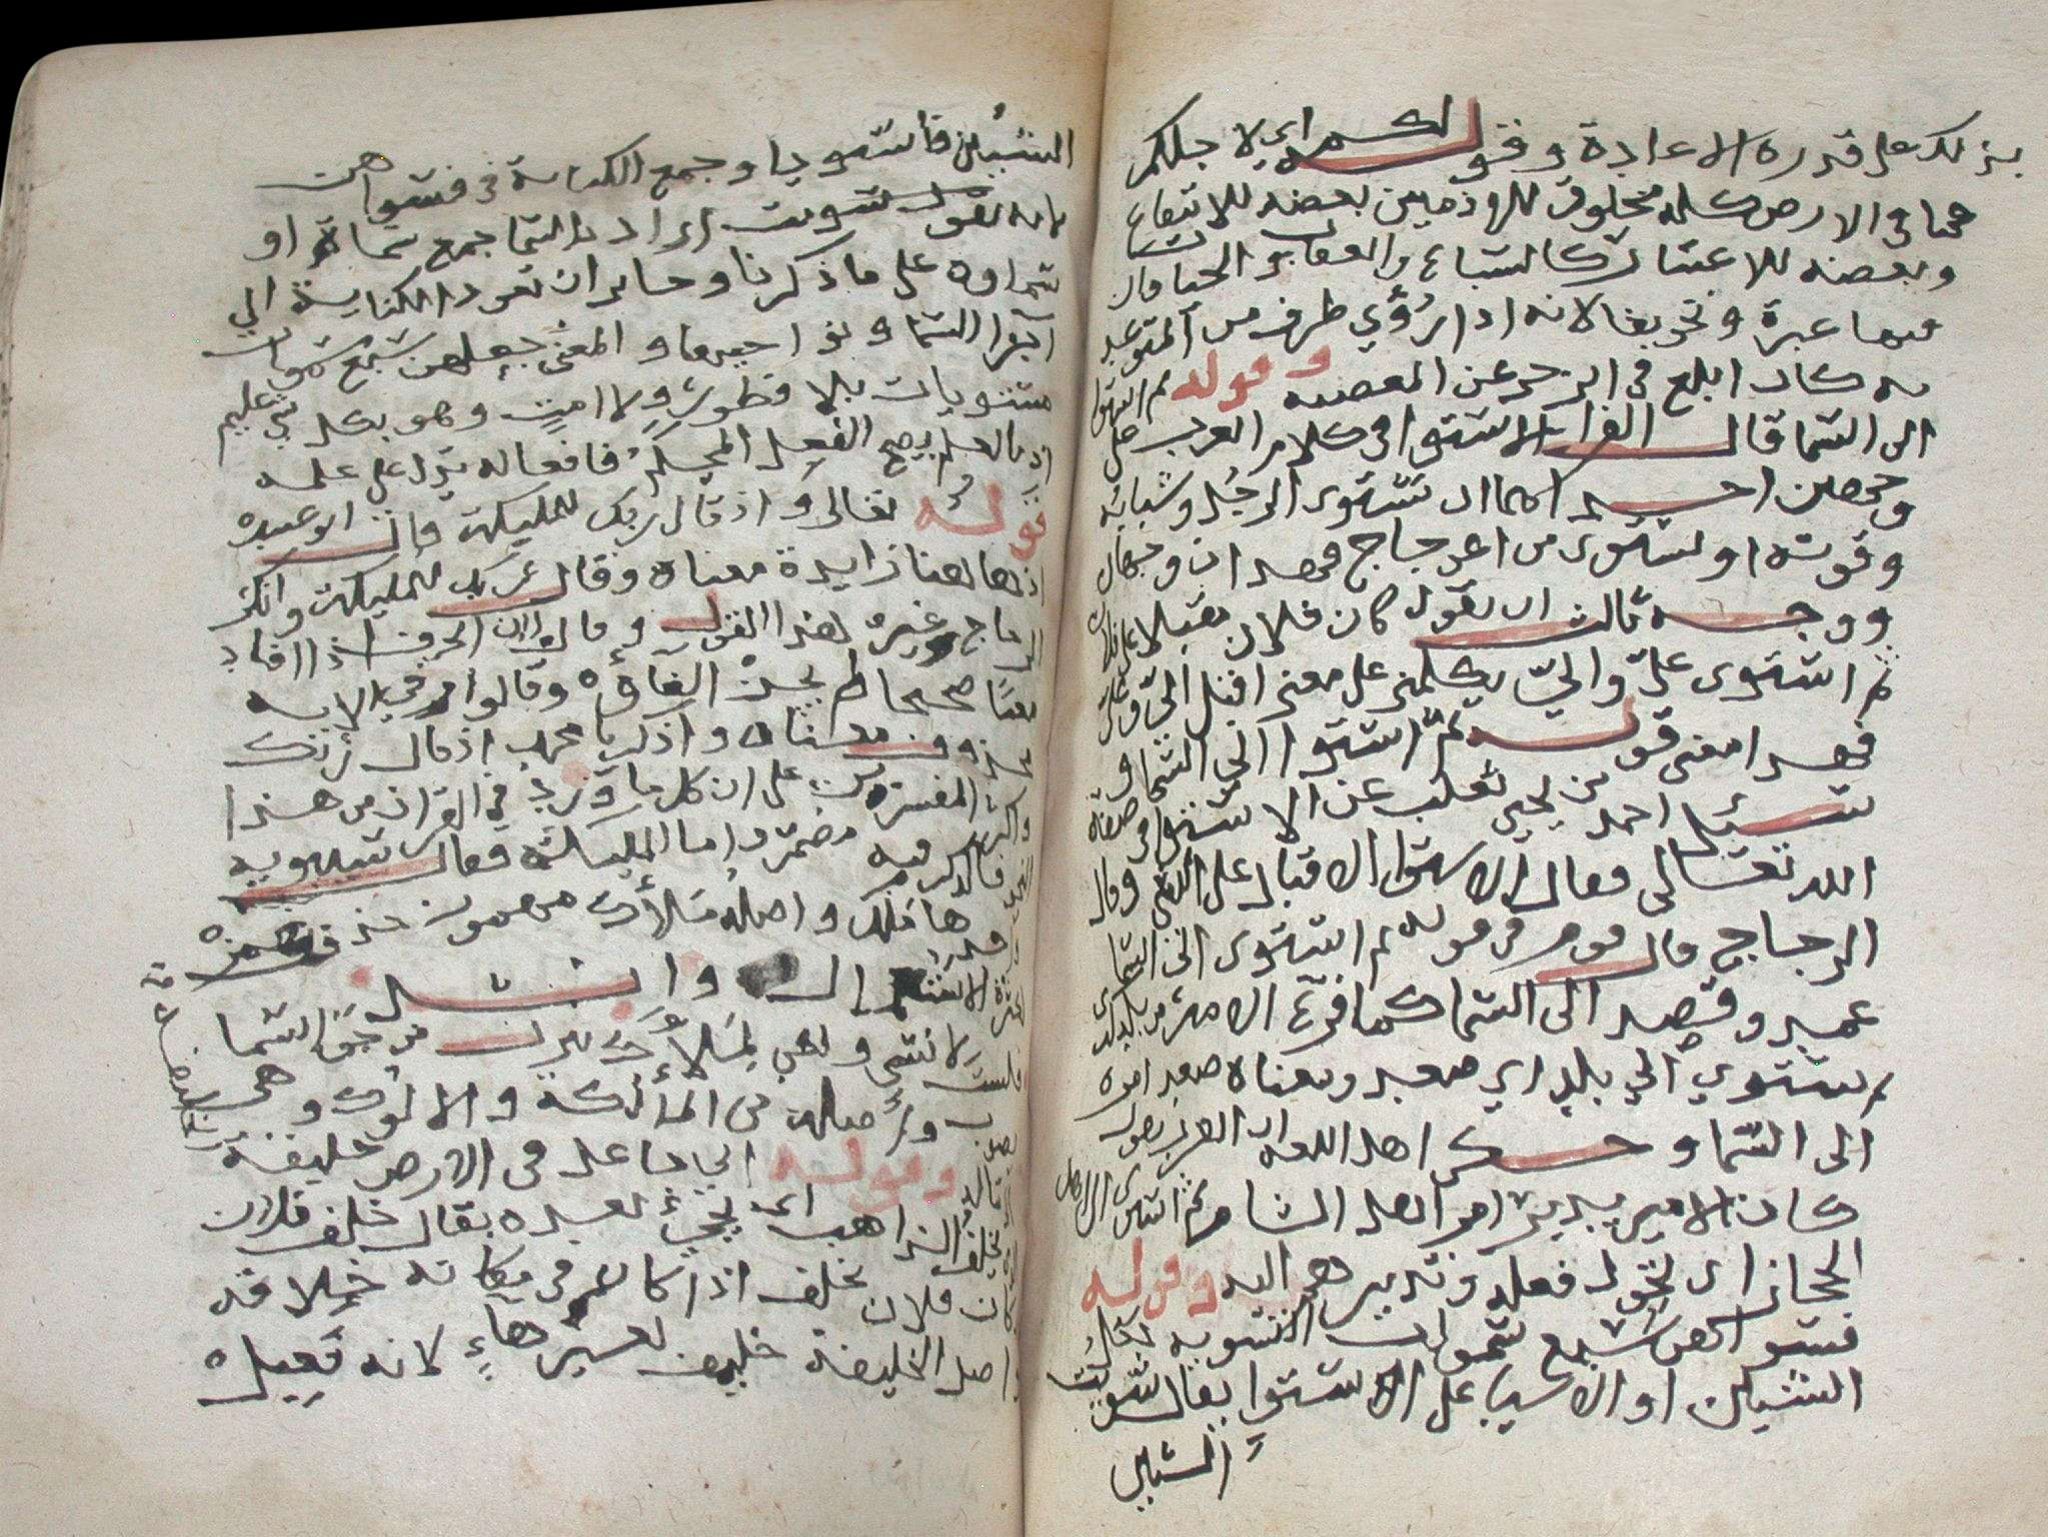 بذلك على قدره الاعادة وقوله لكم اي لاجلكم
فما في الارض كله مخلوق للاذميين بعضه للانتفاع
وبعضه للاعتبار كالسباع والعقارب والحيات فان
فيها عبرة وتخويفا لانه اذا رُؤي طرف من المتوعد
به كان ابلغ في الزجر عن المعصيه وقوله ثم استوا
الى السما قال الفرا الاستوا في كلام العرب على
وجهين احدهما ان تستوى الرجل وشبابه
وقوته او تستوى من اعوجاج فهذان وجهان
ووجه ثالث ان تقول كان فلان مقبلا على فلان
ثم استوى عليّ واليّ يكلمني على معنى اقبل اليّ وعليّ
فهذا معنى قوله ثم استوا الى السما و
سئل احمد بن يحيى ثعلب عن الاستوا في صفة
الله تعالى فقال الاستوا الاقبال على الشي وقال
الزجاج قال قوم في قوله ثم استوى الى السما
عمد وقصد الى السما كما فرغ الامير من بلد كذى
ثم استوى الي بلد اي صعد ومعناه صعد امره
الى السما وحكى اهل اللغه ان العرب تقول
كان الامير يدبر امر اهل الشام ثم استوى الى اهل
الحجاز اى تحول فعله وتدبيره اليه وقوله
فسواهن سبع سموات التسويه جعل
الشيئين او الاشيا على الاستوا يقال سويت
الشيئين
الشيئين فاستويا وجمع الكناية في فسواهن
لانه تقول سويت اراد بالسما جمع سماة او
سماوه على ما ذكرنا وجايز ان تعود الكناية الي
اجزا السما ونواحيها والمعنى جعلهن سبع سموات
مستويات بلا فطور ولا امت وهو بكل شي عليم
اذ بالعلم يصح الفعل المحكم فافعاله تدل على علمه
قوله تعالى واذ قال ربك للمليكة قال ابو عبيده
اذ هاهنا زايدة معناه وقال ربك للمليكة وانكر
الزجاج وغيره هذا القول وقالوا ان الحرف اذا افاد
معنًا صحيحا لم يجز الغاؤه وقالوا في الايه
محذوف معناه واذكر يا محمد اذ قال ربك
واكثر المفسرين على ان كل ما ورد في القران من هذا
فالذكر فيه مضمر واما المليكة فقال سيبويه
واحدها ملك واصله ملأك مهموز حذف همزه
لكثرة الاستعمال وانشد
فلست لانسي ولكن لملأكٍ تنزل من جو السما
يصوب وأصله من المألكة والالوك وهى
الرسالة وقوله اني جاعل في الارض خليفة
يخلف الذاهب اى يجيء بعده يقال خلف فلان
مكان فلان يخلف اذا كان في مكانه خلافه
واصل الخليفة خليف بغير هاءٍ لانه فعيل